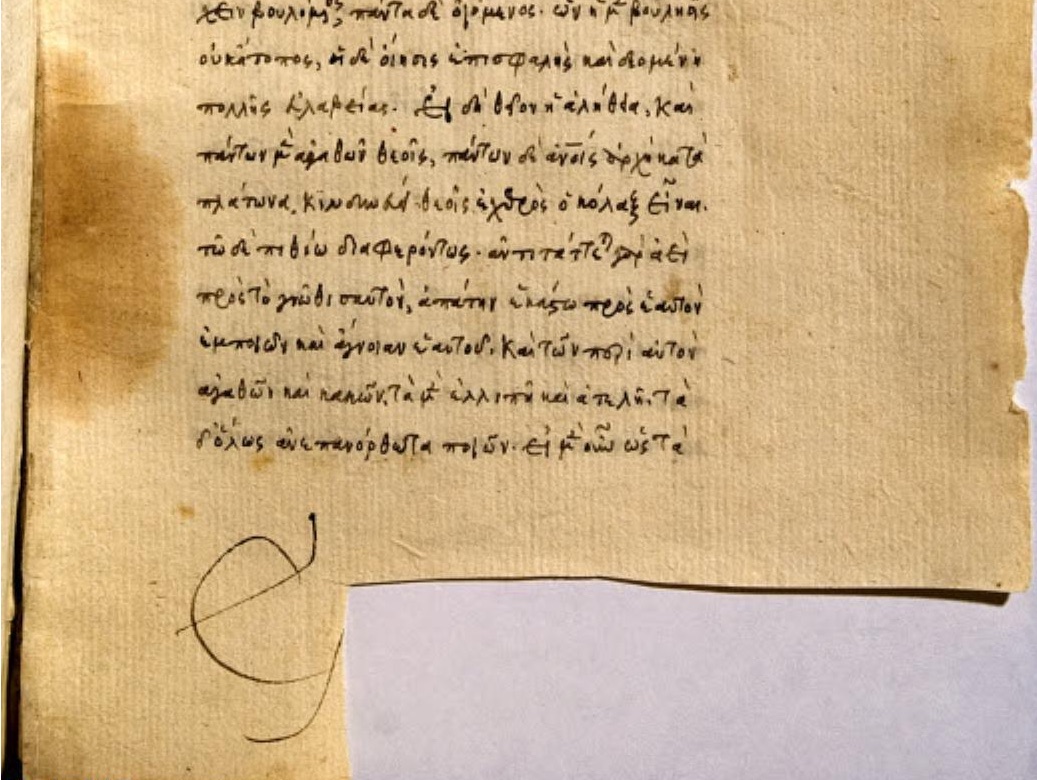 χειν βουλόμενος, πάντα δὲ οἰόμενος· ὧν ἡ μὲν βούλησις
οὐκ ἄτοπος, ἡ δὲ οἴησις ἐπισφαλὴς καὶ δεομένη
πολλῆς εὐλαβείας. Εἰ δὲ θεῖον ἡ ἀλήθεια, καὶ
πάντων μὲν ἀγαθῶν θεοῖς, πάντων δὲ ἀνοις ἀρχὴ κατὰ
πλάτωνα, κινδυνεύει θεοῖς ἐχθρὸς ὁ κόλαξ εἶναι.
τῷ δὲ πυθίω διαφερόντως· ἀντιτάττεται γὰρ ἀεὶ
πρὸς τὸ γνῶθι σαυτὸν, ἀπάτην ἑκάστω πρὸς ἑαυτὸν
ἐμποιῶν καὶ ἄγνοιαν ἑαυτοῦ. καὶ τῶν περὶ αὐτὸν
ἀγαθῶν καὶ κακῶν, τὰ μὲν ἐλλιπῆ καὶ ἀτελῆ. τὰ
δ' ὅλως ἀνεπανόρθωτα ποιῶν. εἰ μὲν οὖν ὡς τὰ